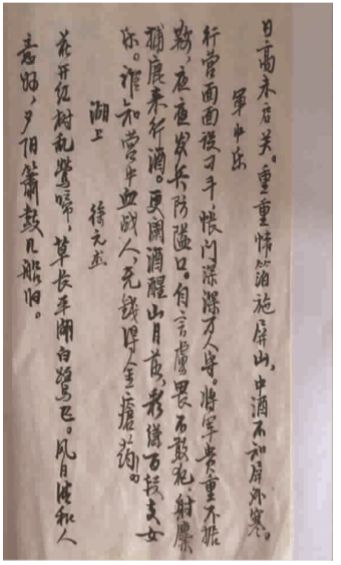 日高未启关。重重帏箔施屏山,中酒不知屏外寒。
军中乐
行营面面设刁斗,帐门深深万人守。将军贵重不据
鞍,夜夜发兵防隘口。自言虏畏不敢犯,射麋
捕鹿来行酒。更阑酒醒山月落,彩缣百段支女
乐。谁知营中血战人,无钱得合金疮药。
湖上 徐元杰
花开红树乱莺啼,草长平湖白鹭飞。风日晴和人
意好,夕阳箫鼓几船归。